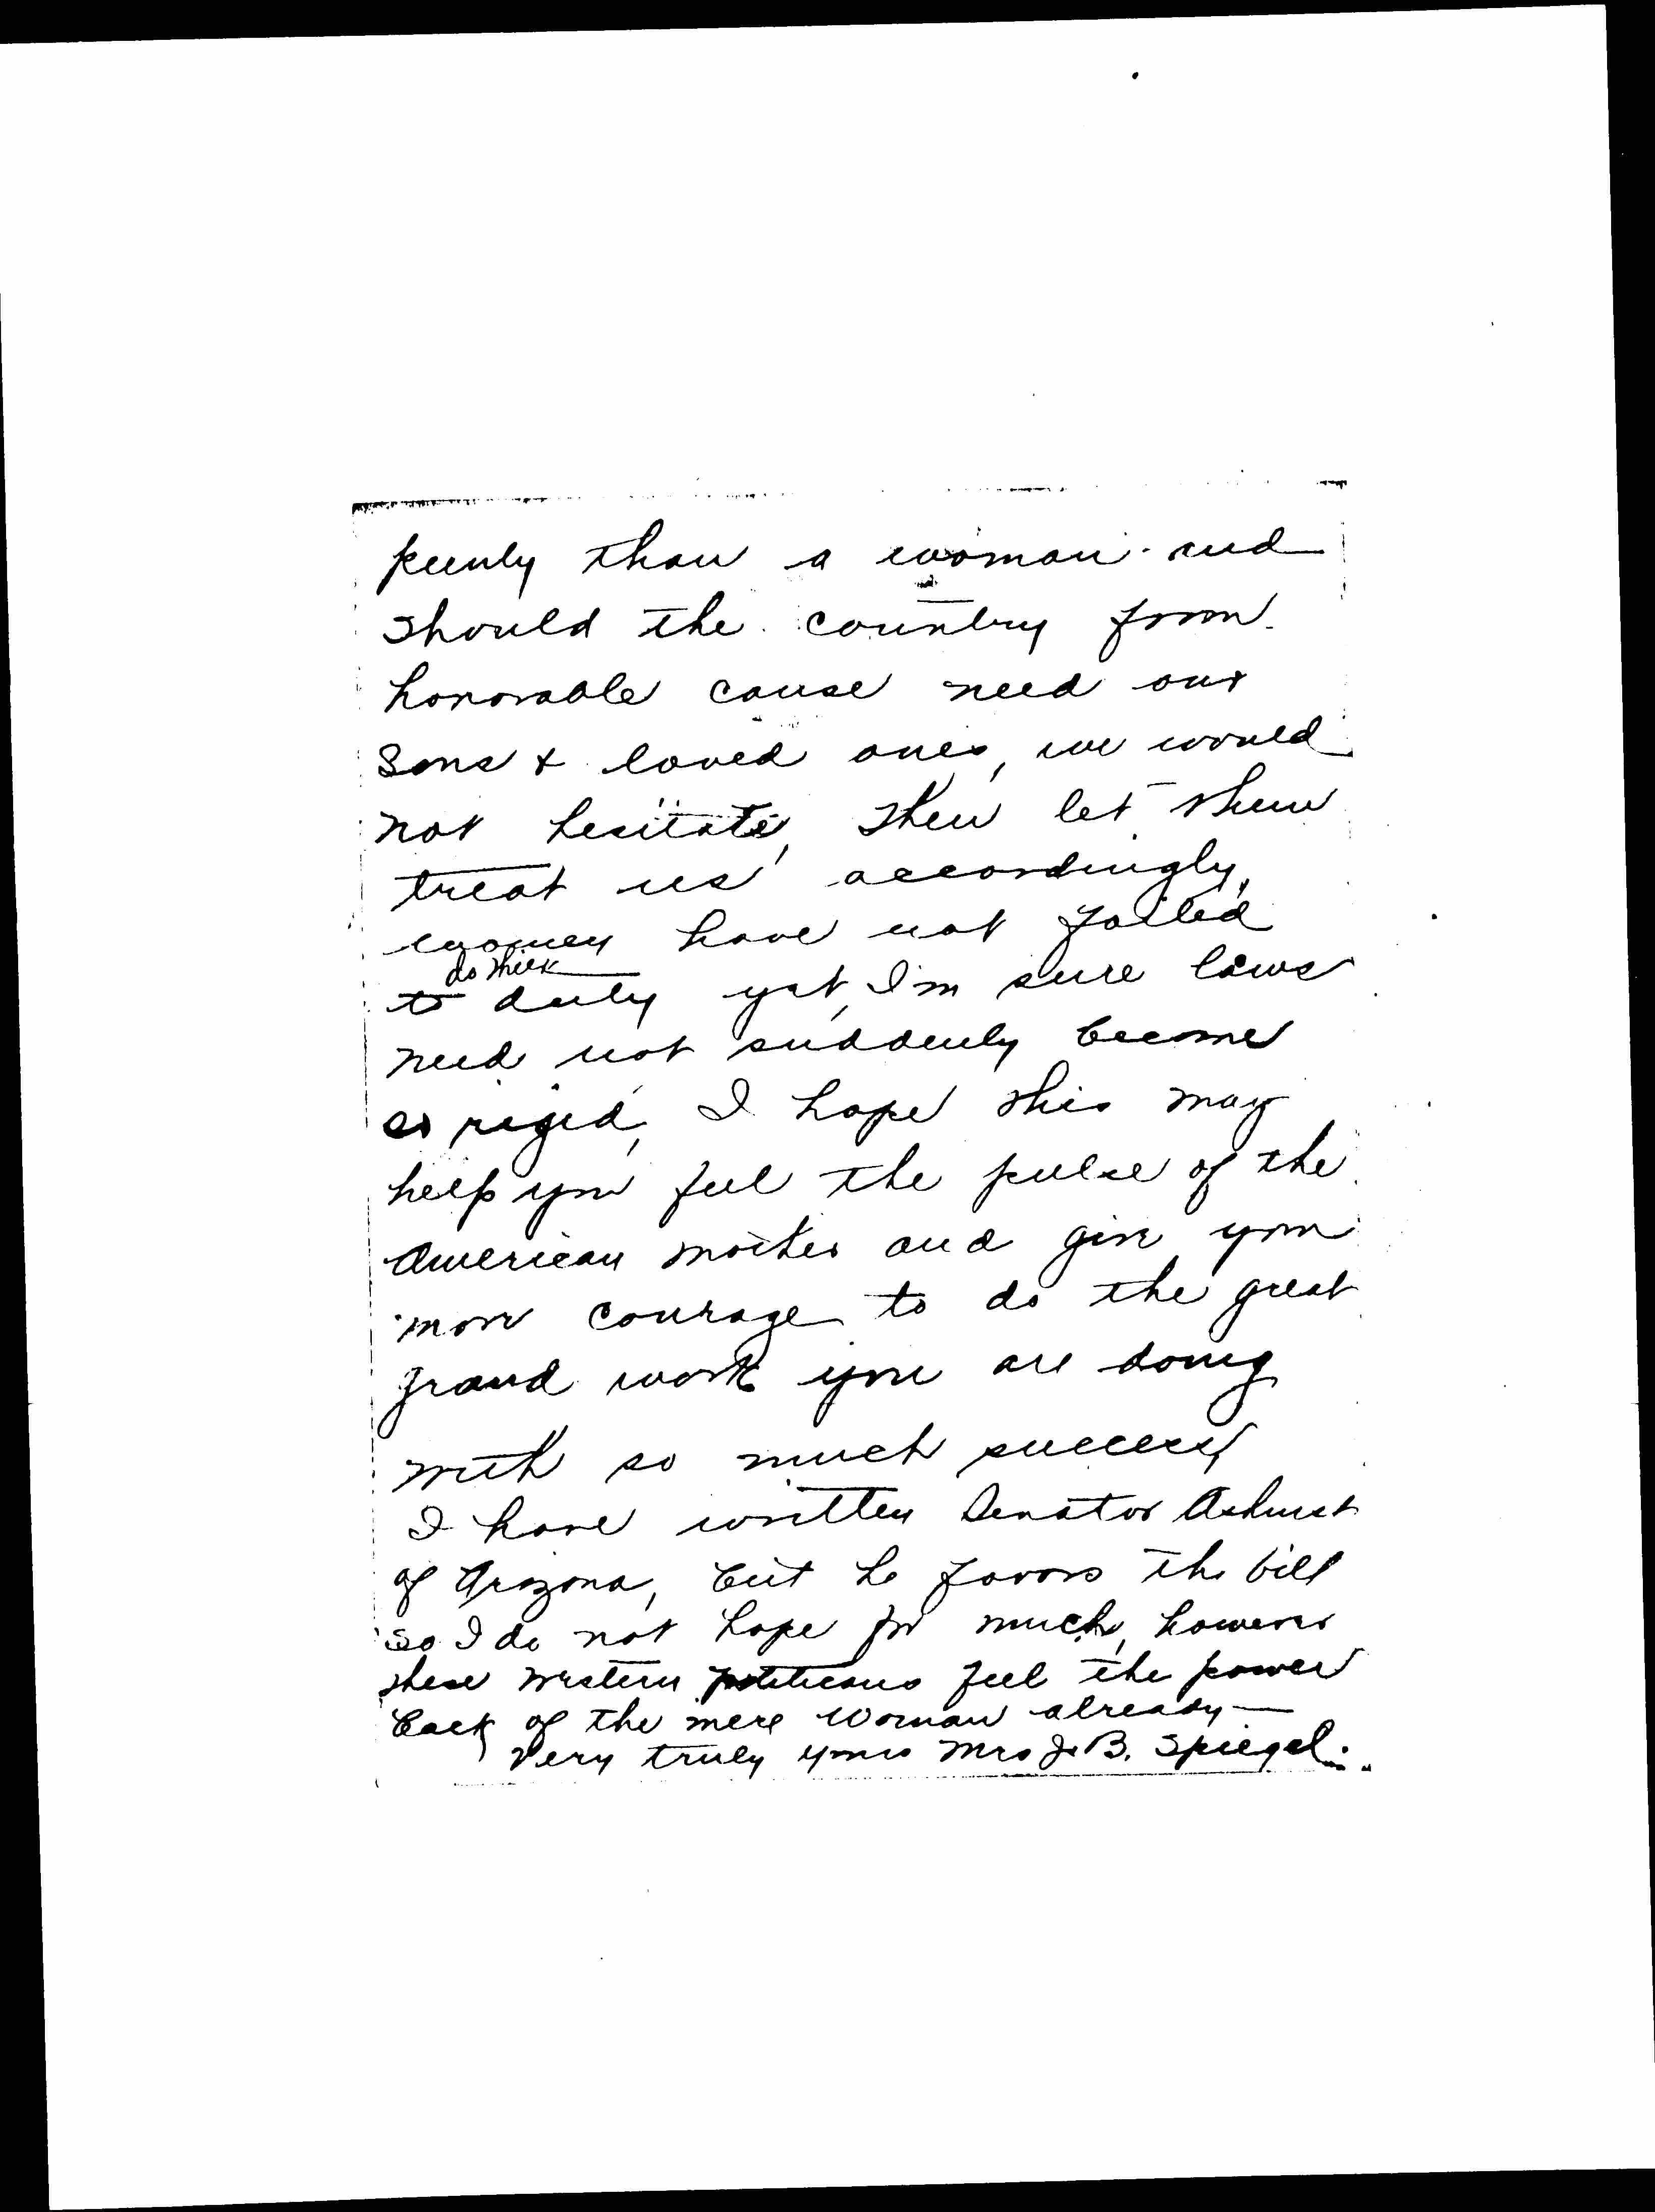 keenly than a woman and
should the country from
honorable cause need our
Sons & loved ones, we would
not hesitate, then let them
treat us accordingly,
women have not failed
do their
to duly yet, I'm sure laws
need not suddenly become
so rigid, I hope this may
help you feel the pulse of the
American mother and give you
more courage to do the great
grand work you are doing
with so much success,
I have written Senator Ashurst
of Arizona, but he favors the bill
so I do not hope for much, however
these western politicians feel the power
back of the mere woman already—
Very truly yours Mrs J. B. Spiegel.